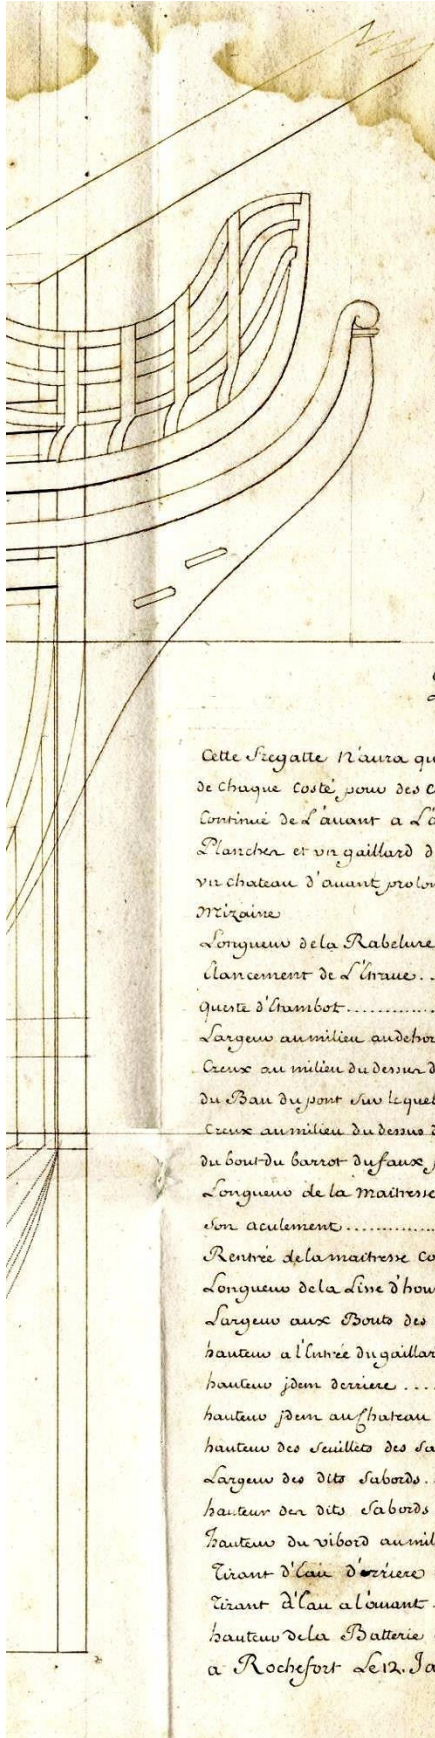 Cette Fregatte N'aura qu
de chaque Costé pour des C
Continué de L'auant a L'a
Planches et vn gaillard d
vn chateau d'auant prolon
Mizaine
Longueur dela Rabelure
Elancement de L'Etraue..
Queste d'Etambot..............
Largeur au milieu au dehor
Creux au milieu du dessus d
du Bau du pont Sur lequel
Creux au milieu du dessus d
du bout du barrot du faux
Longueur de la Maitresse
Son aculement..............
Rentrée dela maitresse Co
Longueur dela Lisse d'hou
Largeur aux Bouts des
hauteur a l'Entrée du gaillar
hauteur jdem derriere ....
hauteur jdem au Chateau
hauteur des Seuillets des Sa
Largeur des dits Sabords.
hauteur des dits Sabords
hauteur du vibord au mil
Tirant d'Eau d'erriere
Tirant d'Eau a l'auant.
hauteur dela Batterie
a Rochefort Le 12. Ja